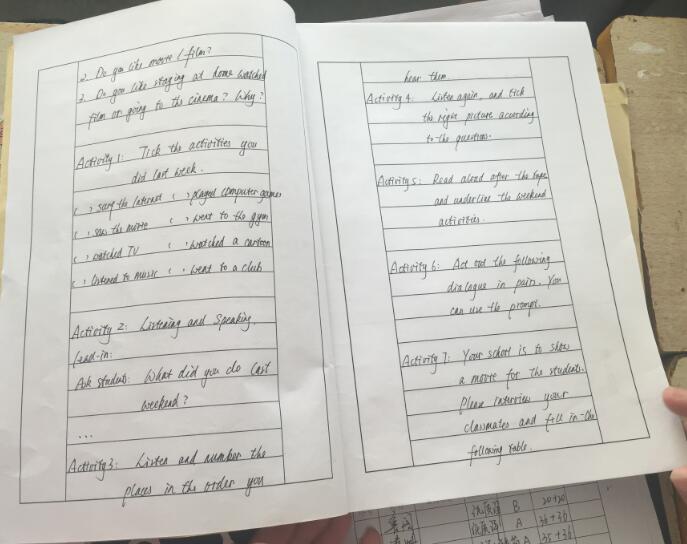 2. Do you like movie / film?
3. Do you like staging at dome watched
film or going to the cinema? Why?
Activity 1: Tick the activities you
did last week.
( ) surf the Internet ( ) played computer games
( ) saw the movie ( ) went to the gym
( ) watched TV ( ) watched a cartoon
( ) listened to music ( ) went to a club
Activity 2: Listening and Speaking.
Lead-in:
Ask students: What did you do last
weekend?
...
Activity 3: Listen and number the
places in the order you
hear them.
Activity 4: Listen again, and tick
the right picture according
to the question.
Activity 5: Read aloud after the tape
and underline the weekend
activities.
Activity 6: Act out the following
dialogue in pairs. You
can use the prompt.
Activity 7: Your school is to show
a movie for the students.
Please interview your
classmates and fill in the
following table.
B 20+20
A 36+36
A 35+36